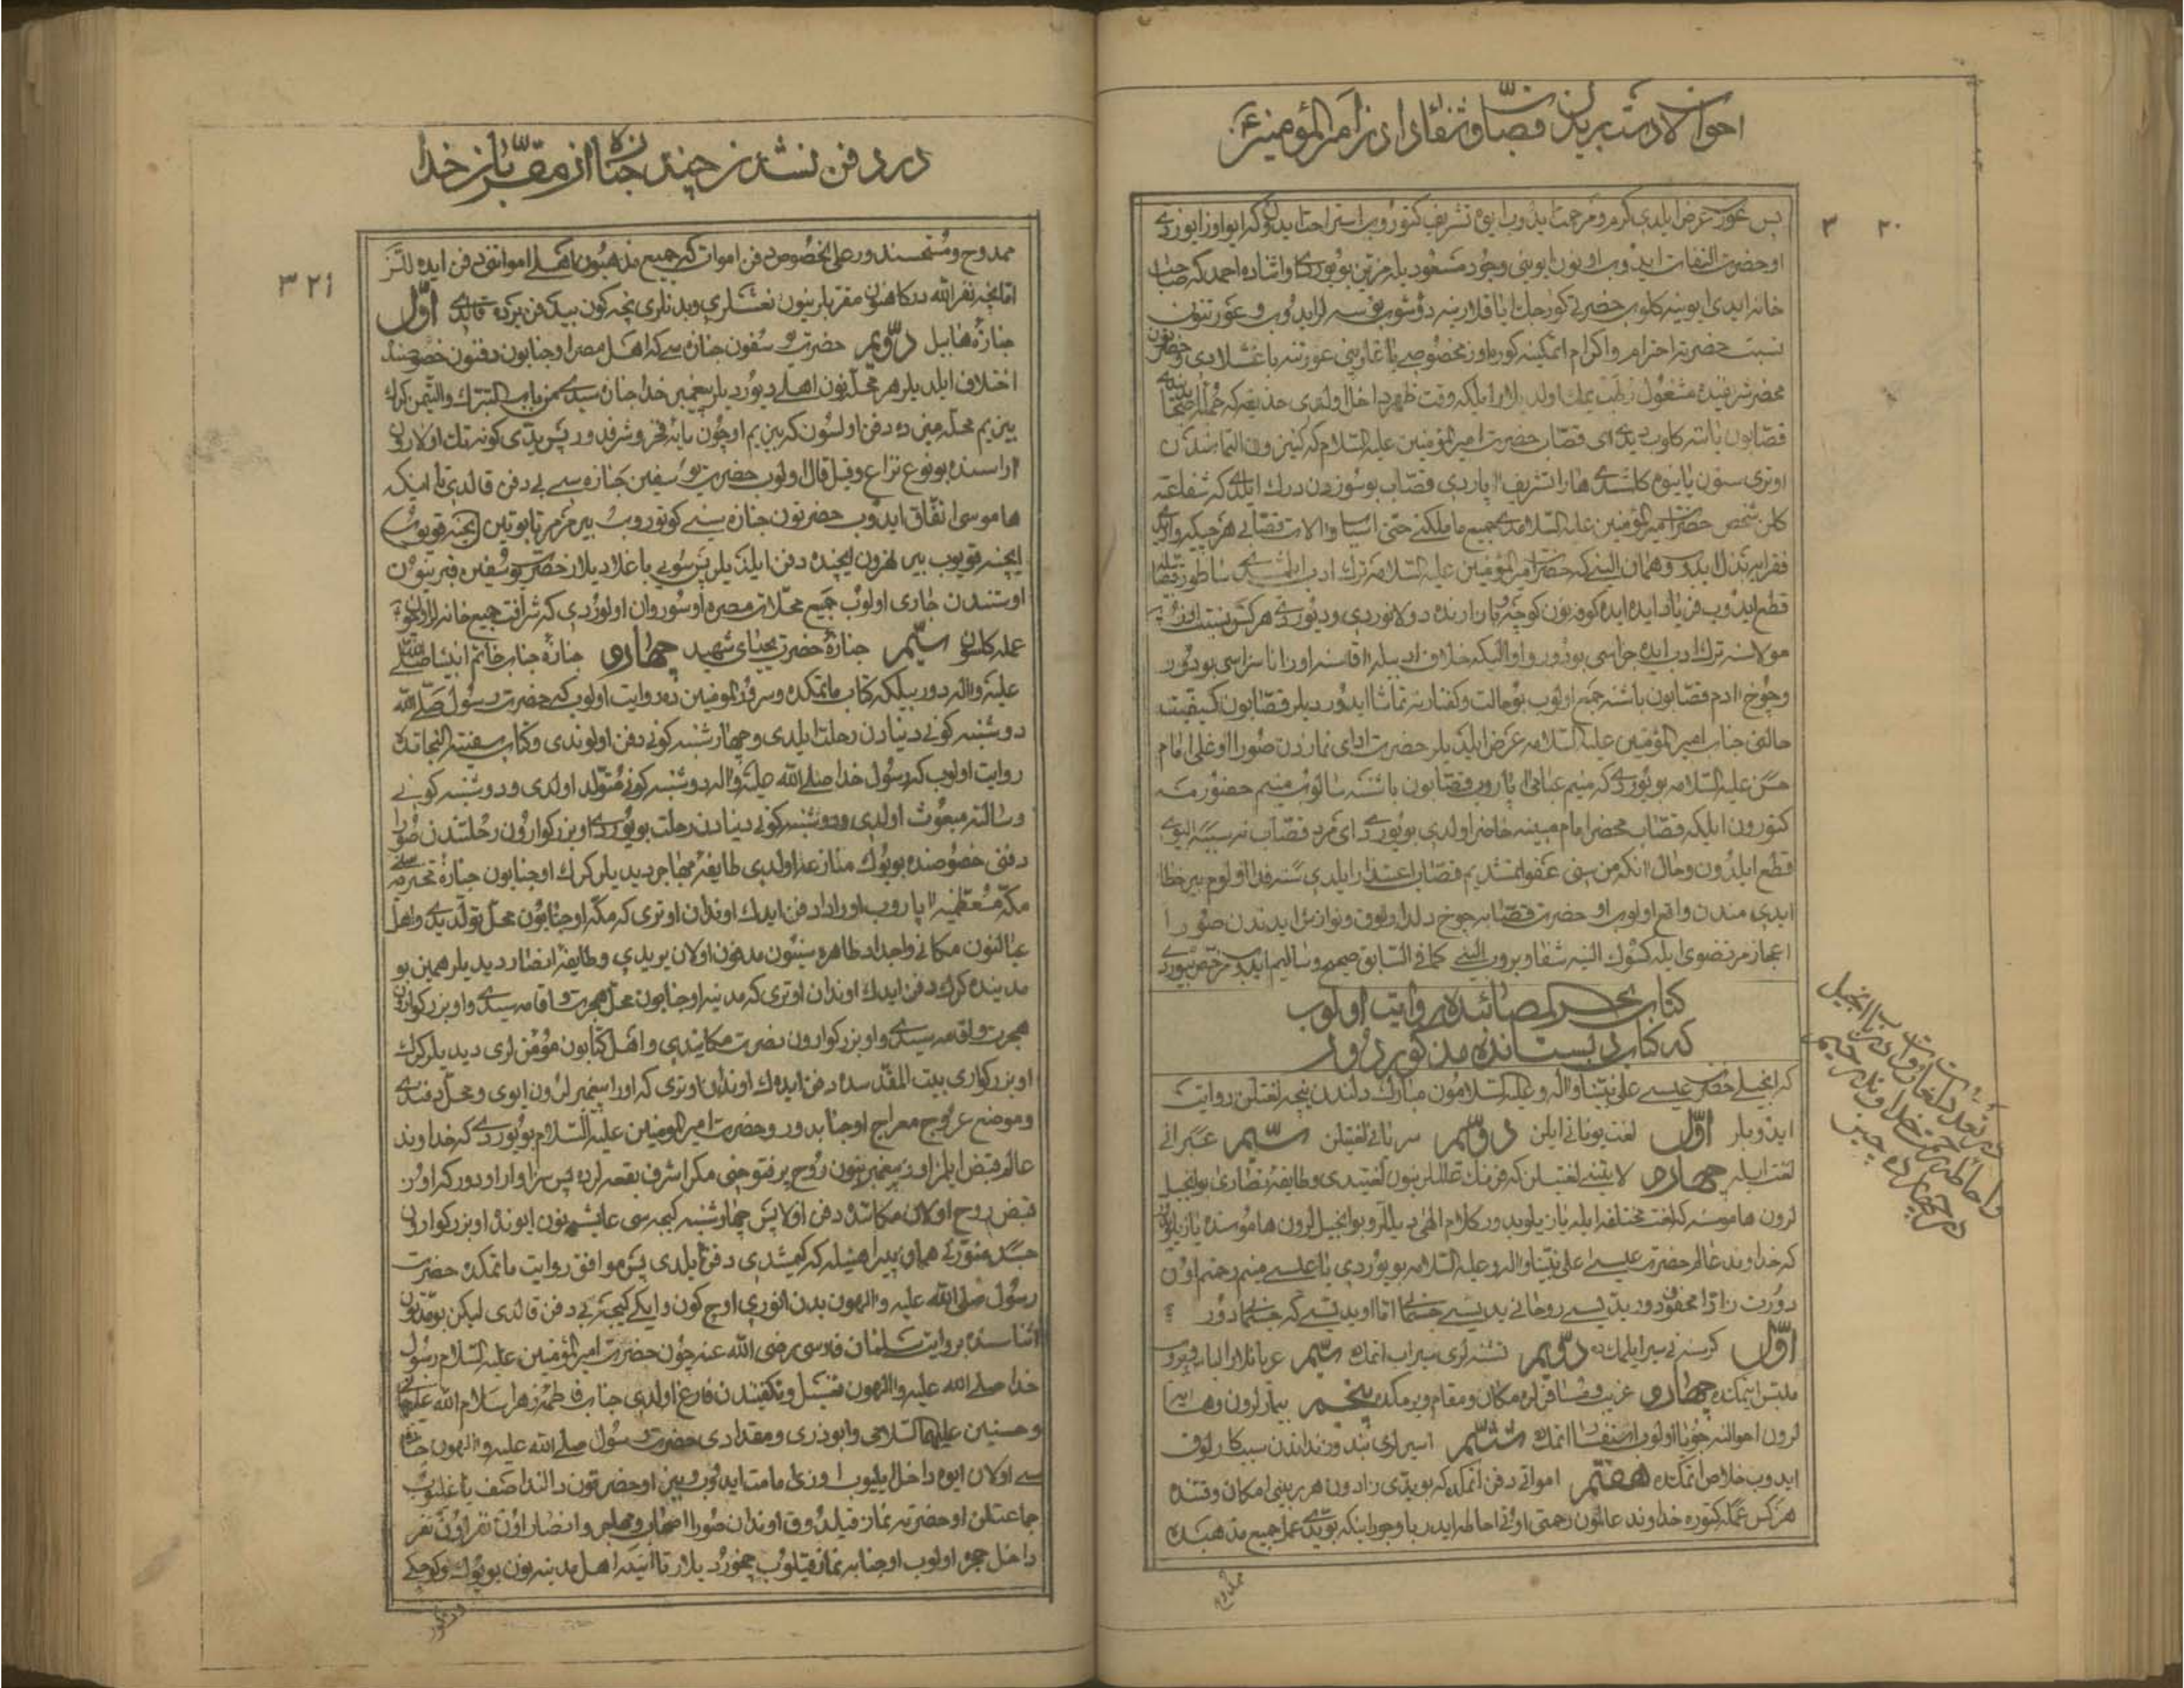 احوال دست بریدن قصاب و شفا دادن امیر المؤمنین ع
٣٢٠
پس عورت عرض ایلدی کرم و مرحمت ایدوب ایوه تشریف کتوروب استراحت ایدون که ابو
او حضرت التفات ایدوب اونون ایوینی وجود مسعودیله مزین بویوردی و اشاره احمد که صاحب
خانه ایدی ایوینه کلوب حضرتی کورجك ایاقلارینه دوشوب بوسه لر ایدوب و عورتنون
نسبت حضرته احترام و اکرام اتمکینه
محضر شریفینده مشغول اولدیلار تا اینکه وقت ظهر داخل اولدی
قصابون باشنه کلوب دیدی ای قصاب حضرت امیر المؤمنین علیه السلام که کنیزون التماسندن
اوتری سنون یانیوه کلمشدی هارا تشریف آپاردی قصاب بو سوزدن درك ایلدی که شفاعته
کلن شخص حضرت امیر المؤمنین علیه السلامدی جمیع ماملکنی حتی اسباب و الات قصابی هر
فقرایه بذل ایدوب و همان الینی که حضرت امیر المؤمنین علیه السلامه ترك ادب ایلمشدی ساطور قصابیله
قطع ایدوب فریاد ایده ایده کوفه نون کوچه و بازارنده دولانوردی و دیوردی هر کس نسبت اوز
مولاسنه ترك ادب ایده جزاسی بودور
و چوخ ادم قصابون باشنه جمع اولوب بو حالت و کفتارینه تماشا ایدوردیلر قصابون کیفیت
حالتنی جناب امیر المؤمنین علیه السلامه عرض ایلدیلر حضرت ادای نمازدن صورا اوغلی امام
حسن علیه السلامه بویوردی که منیم عبامی آپاروب قصابون باشنه سالوب منیم حضورمه
کتورون ایلکه قصاب محضر امام مبینه حاضر اولدی بویوردی ای مرد قصاب نه سببه الیوی
قطع ایلدون و حال آنکه من سنی عفو اتمشدیم قصاب اعتذار ایلدی سنه فدا اولوم بیر خطا
ایدی مندن واقع اولوب او حضرت قصابه چوخ دلدارلوق و نوازش ایدندن صورا
اعجاز مرتضوی ایله کسوك الینه شفا ویروب الینی کما فی السابق صحیح و سالم ایدوب مرخص بیوردی
کتاب بحر المصائبده روایت اولوب
که کتاب دبستانده مذکوردور
که انجیل حضرت عیسی علی نبینا و آله و علیه السلامون مبارك دلندن نیچه لغتلن روایت
ایدوبلر اوّل لغت یونانی ایلن دوّیم سریانی لغتیلن سیّم عبرانی
لغت ایله چهارم لاتینی لغتیلن که فرنك عالملرینون لغتیدی و طایفه نصاری بو انجیل
لرون هاموسنه که لغت مختلفه ایله یازیلوبدور کلام الهی دیللر و بو انجیللرون هاموسنده یازیلوب
که خداوند عالم حضرت عیسی علی نبینا و آله و علیه السلامه بویوردی یا عیسی منیم رحمتم اون
دورت زاده محفوفدور یدیسی روحانی یدیسی جسمانی اما او یدیسی که جسمانیدور
اوّل کرسنه نی سیر ایلمك ده دوّیم تشنه لری سیراب اتمك ده سیّم عریانلارا لباس ویروب
ملبس اتمکده چهارم غریب و مسافرلره مکان و مقام ویرمکده پنجم بیمارلرون و
لرون احوالنه جویا اولوب استفسار اتمك ششم اسیرلری بند و زنداندن
ایدوب خلاص اتمکده هفتم امواتی دفن اتمکده که بو یدی زادون هر برینی امکان وقتنده
هر کس عمله کتوره خداوند عالمون رحمتی اونی احاطه ایدر با وجود اینکه بو یدی عمل جمیع مذهبده
در تعداد لغات روایت انجیل
و احاطه رحمت خدا و
در چهارده چیز
در دفن نشدن چند جنازه از مقرّبان خدا
٣٢١
ممدوح و مستحسندور علی الخصوص دفن اموات که جمیع مذهبون اهلی امواتنی دفن ایده للر
اما نیچه نفر الله درکاهنون مقربلرینون نعشلری و بدنلری نیچه کون بیدفن یرده قالدی اوّل
جنازه هابیل دوّیم حضرت یوسفون جنازه سی که اهل مصر او جنابون دفنون خصوصنده
اختلاف ایلدیلر هر محله نون اهلی دیوردیلر پیغمبر خدا جنازه سیدی من باب التبرك و التیمن کرك
بیزیم محله میزده دفن اولسون که بیزیم اوچون مایه فخر و شرفدور پس یدی کونه تك اولارون
اراسنده بو نوع نزاع و قیل قال اولوب حضرت یوسفین جنازه سی بی دفن قالدی تا اینکه
هاموسی اتفاق ایدوب حضرتون جنازه سینی کوتوروب بیر مرمر تابوتین ایچنه قویوب
ایچنه قویوب بیر نهرون ایچنده دفن ایلدیلر پس سویی باغلادیلار حضرت یوسفین قبرینون
اوستندن جاری اولوب جمیع محلات مصره او سو روان اولوردی که شرافت جمیع خانه لرا
عمله کلسون سیّم جنازه حضرت یحیای شهید چهارم جنازه جناب خاتم انبیا صلی الله
علیه و اله دور بیلکه کتاب ماتمکده و سرور المومنین ده روایت اولوب که حضرت رسول صلی الله
دوشنبه کونی دنیادن رحلت ایلدی و چهارشنبه کونی دفن اولوندی و کتاب سفینة النجاتده
روایت اولوب که رسول خدا صلی الله علیه و اله دوشنبه کونی متولد اولدی و دوشنبه کونی
رسالته مبعوث اولدی و دوشنبه کونی دنیادن رحلت بویوردی او بزرکوارون رحلتندن صورا
دفنی خصوصنده بویوك منازعه اولدی طایفه مهاجر دیدیلر کرك او جنابون جنازه محترمه سنی
مکه معظمیه آپاروب اورادا دفن ایدك اوندان اوتری که مکه او جنابون محل تولدیدی و اهل
عیالنون مکانی و اجداد طاهره سینون مدفون اولان یریدی و طایفه انصار دیدیلر همین بو
مدینده کرك دفن ایدك اوندان اوتری که مدینه او جنابون محل هجرت و اقامه سیدی و او بزرکوارون
هجرت و اقامه سیدی و او بزرکوارون نصرت مکانیدی و اهل کتابون مؤمن لری دیدیلر کرك
او بزرکواری بیت المقدسده دفن ایدوك اوندان اوتری که اورا پیغمبرلرون ایوی و محل دفندی
و موضع عروج معراج او جنابدور و حضرت امیر المومنین علیه السلام بویوردی که خداوند
عالم قبض ایلمز اوز پیغمبرینون روح پر فتوحنی مکر اشرف بقعه لرده پس سزاوار اودور که اوزی
قبض روح اولان مکاندا دفن اولا پس چهارشنبه کیجه سی عایشه نون ایونده او بزرکوارون
جسد منورنی همان پیراهنیله که کیمشدی دفن ایلدی پس موافق روایت ماتمکده حضرت
رسول صلی الله علیه و الهون بدن انوری اوچ کون و ایکی کیجه بی دفن قالدی لیکن بو مدتون
اثناسنده بروایت سلمان فارسی رضی الله عنه چون حضرت امیر المؤمنین علیه السلام رسول
خدا صلی الله علیه و الهون غسل و تکفیندن فارغ اولدی جناب فاطمه زهرا سلام الله علیها
و حسنین علیهما السلامی و ابوذری و مقدادی حضرت رسول صلی الله علیه و الهون جنازه
سی اولان ایوه داخل ایلیوب اوزی امامت ایدوب و بیز او حضرتون دالندا صف باغلیوب
جماعتلن او حضرته نماز قیلدوق اوندان صورا اصحاب و مهاجر و انصار اون نفر اون نفر
داخل حجره اولوب او جنابه نماز قیلوب چخوردیلار تا اینکه اهل مدینه نون بویوك و کوچکی